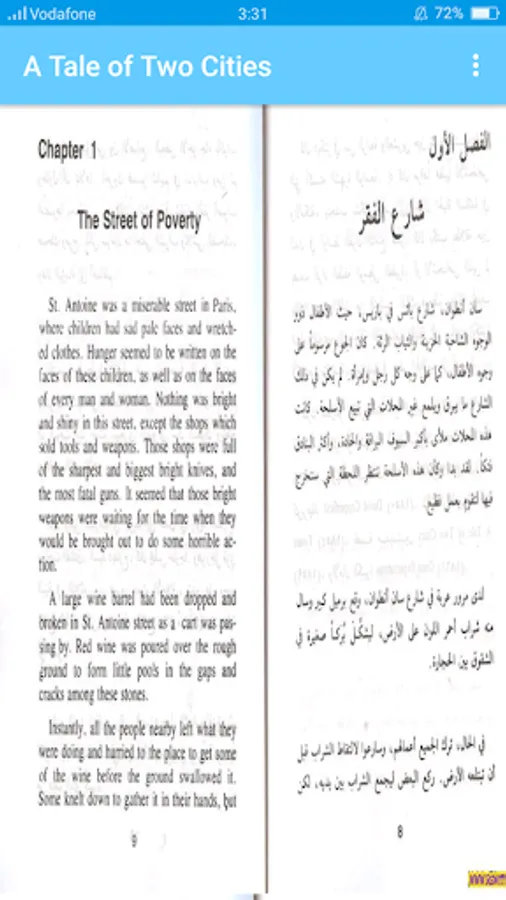 Vodafone
3:31
72%
A Tale of Two Cities
Chapter 1
The Street of Poverty
St. Antoine was a miserable street in Paris,
where children had sad pale faces and wretch-
ed clothes. Hunger seemed to be written on the
faces of these children, as well as on the faces
of every man and woman. Nothing was bright
and shiny in this street, except the shops which
sold tools and weapons. Those shops were full
of the sharpest and biggest bright knives, and
the most fatal guns. It seemed that those bright
weapons were waiting for the time when they
would be brought out to do some horrible ac-
tion.
A large wine barrel had been dropped and
broken in St. Antoine street as a cart was pas-
sing by. Red wine was poured over the rough
ground to form little pools in the gaps and
cracks among these stones.
Instantly, all the people nearby left what they
were doing and hurried to the place to get some
of the wine before the ground swallowed it.
Some knelt down to gather it in their hands, but
9
الفصل الأول
شارع الفقر
سان أنطوان، شارع بائس في باريس، حيث الأطفال ذوو
الوجوه الشاحبة الحزينة والثياب الرثة. كان الجوع مرسوماً على
وجوه الأطفال، كما على وجه كل رجل وامرأة. لم يكن في ذلك
الشارع ما يبرق ويلمع غير المحلات التي تبيع الأسلحة. كانت
هذه المحلات ملأى بأكبر السيوف البراقة والحادة، وأكثر البنادق
فتكاً. لقد بدا وكأن هذه الأسلحة تنتظر اللحظة التي ستخرج
فيها لتقوم بعمل فظيع.
لدى مرور عربة في شارع سان أنطوان، وقع برميل كبير وسال
منه شراب أحمر اللون على الأرض، ليشكّل بُركاً صغيرة في
الشقوق بين الحجارة.
في الحال، ترك الجميع أعمالهم، وسارعوا لالتقاط الشراب قبل
أن تبتلعه الأرض. ركع البعض ليجمع الشراب بين يديه، لكن
8